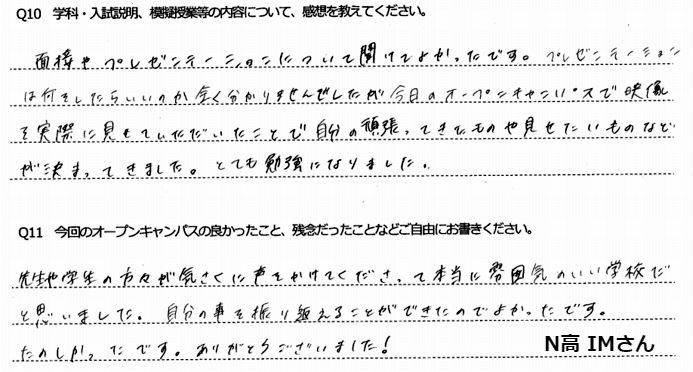 Q10　学科・入試説明、模擬授業等の内容について、感想を教えてください。
面接やプレゼンテーションについて聞けてよかったです。プレゼンテーション
は何をしたらいいのか全く分かりませんでしたが今日のオープンキャンパスで映像
を実際に見せていただいたことで自分の頑張ってきたものや見せたいものなど
が決まってきました。とても勉強になりました。
Q11　今回のオープンキャンパスの良かったこと、残念だったことなどご自由にお書きください。
先生や学生の方々が気さくに声をかけてくださって本当に雰囲気のいい学校だ
と思いました。自分の事を振り返えることができたのでよかったです。
たのしかったです。ありがとうございました！
N高 IMさん